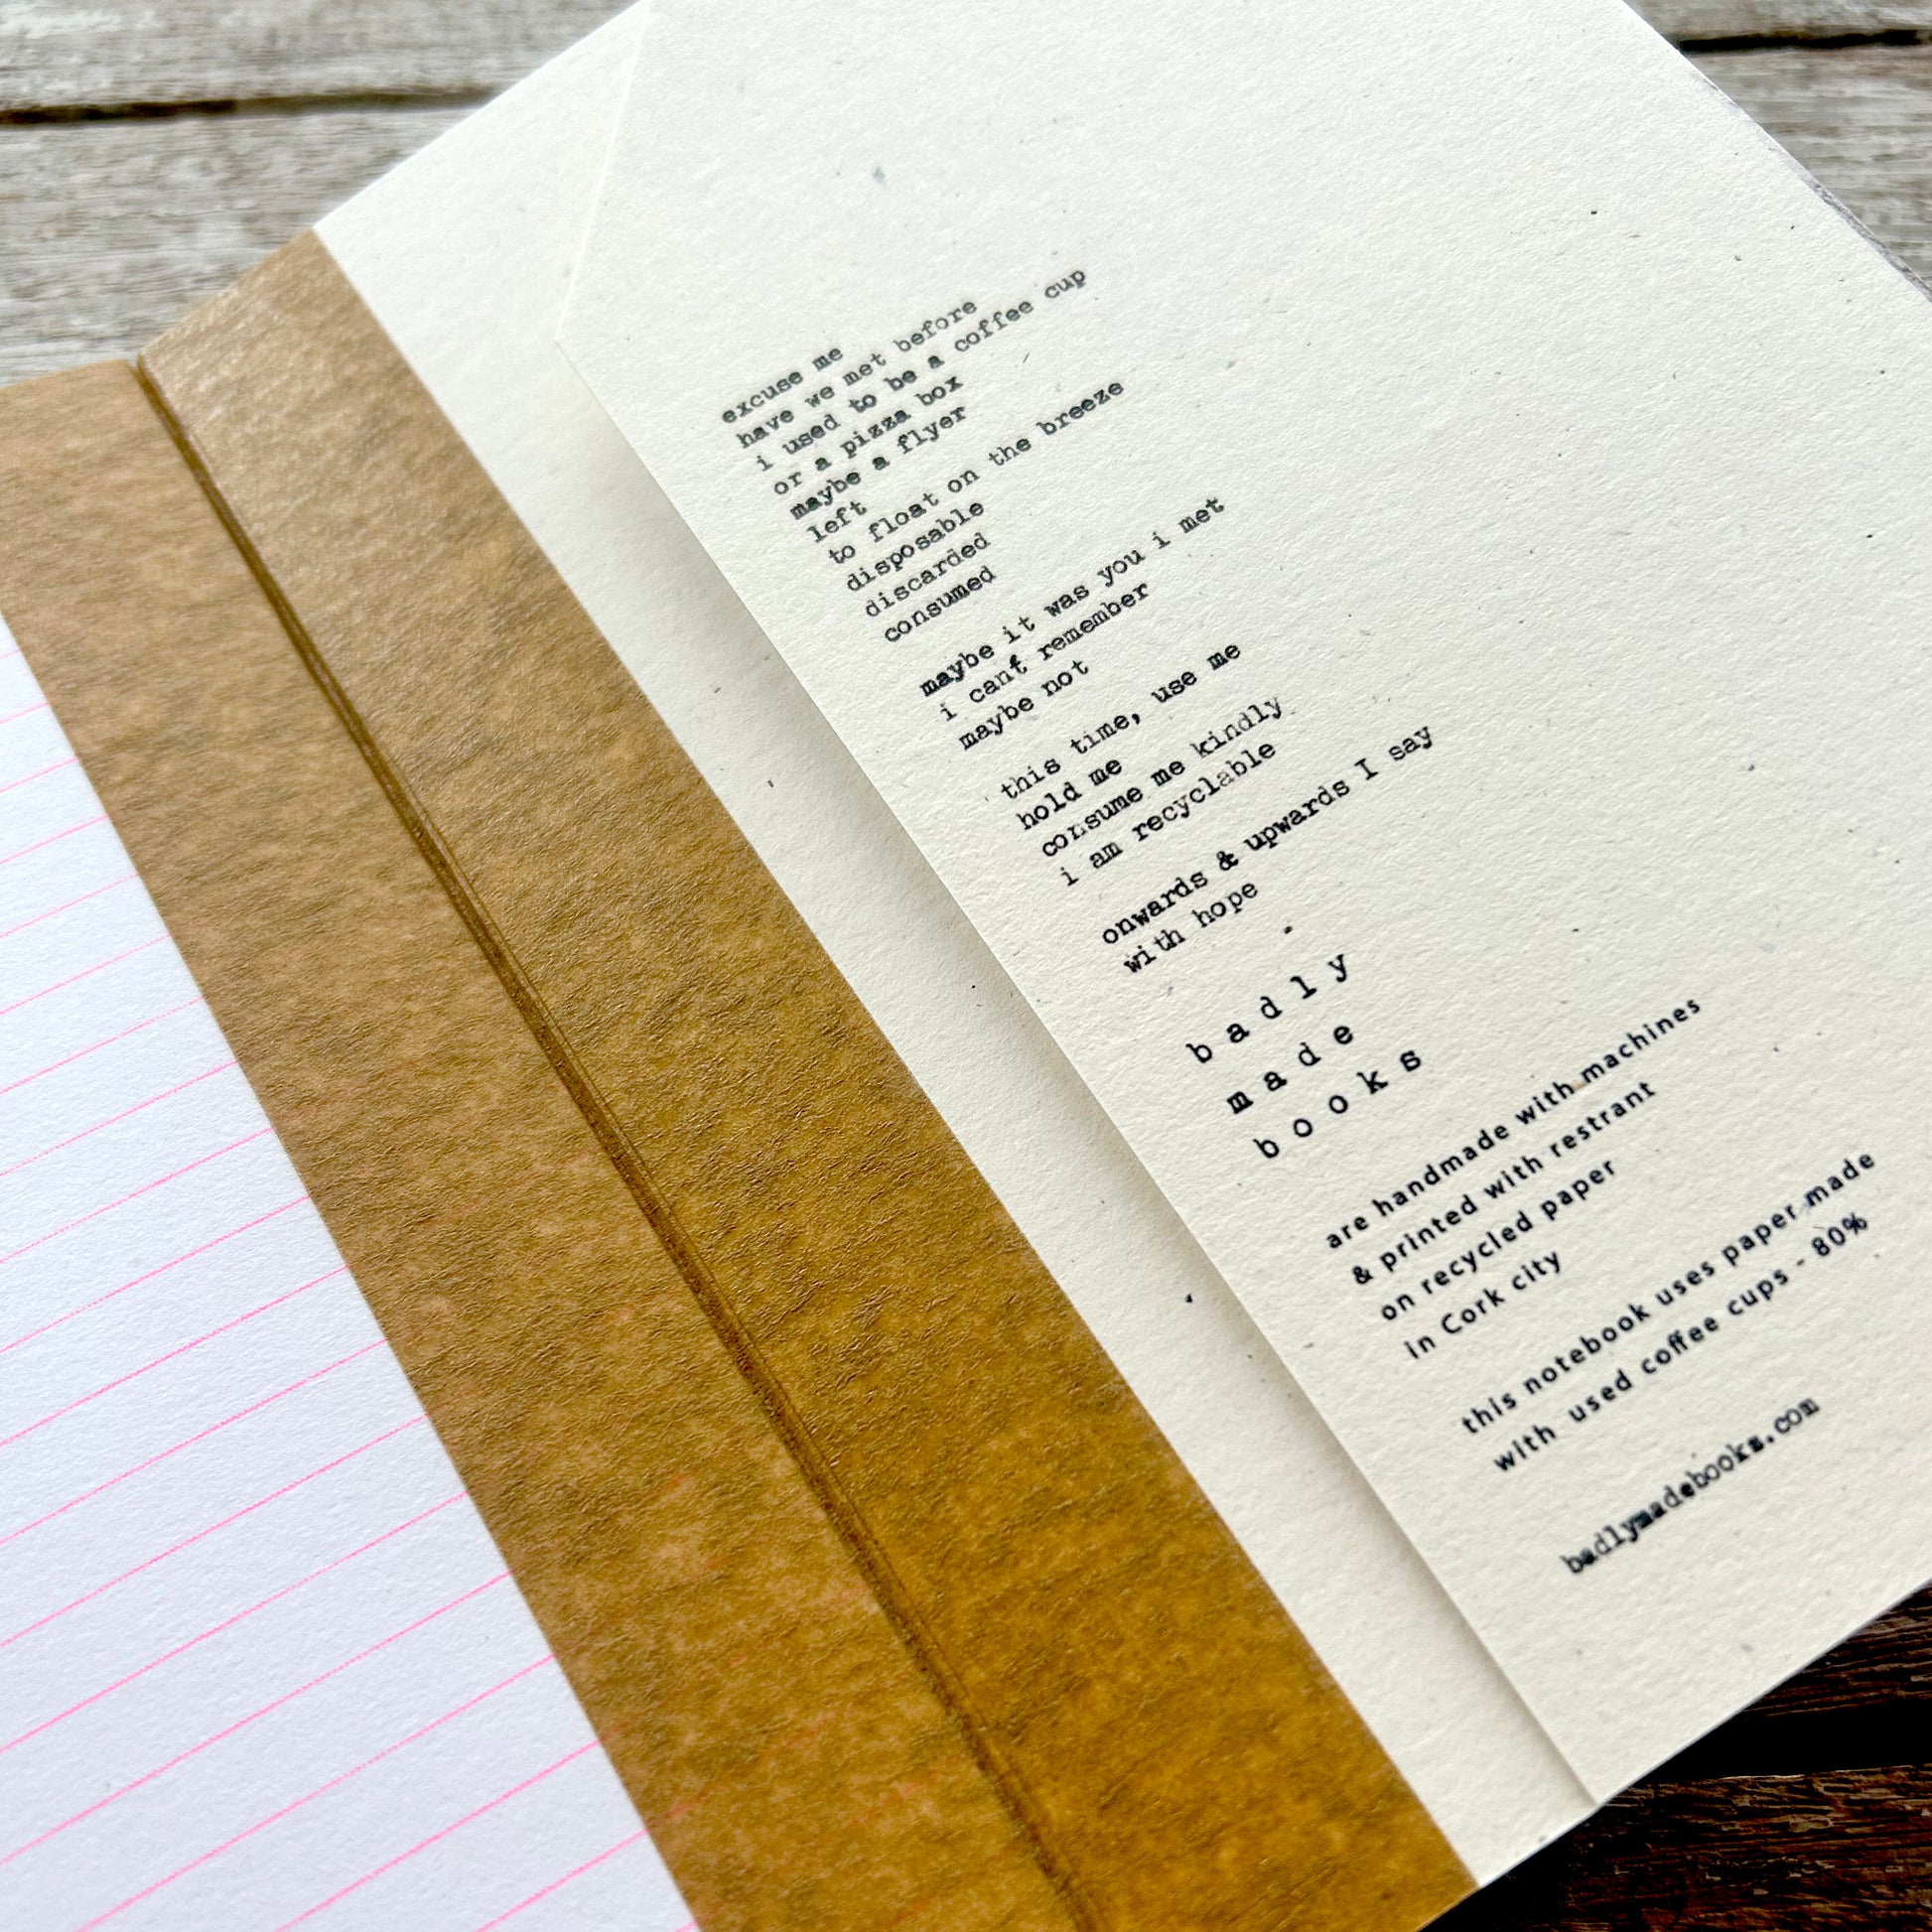 excuse me
have we met before
i used to be a coffee cup
or a pizza box
maybe a flyer
left
to float on the breeze
disposable
discarded
consumed
maybe it was you i met
i cant remember
maybe not
this time, use me
hold me
consume me kindly
i am recyclable
onwards & upwards I say
with hope
badly
made
books
are handmade with machines
& printed with restrant
on recycled paper
in Cork city
this notebook uses paper made
with used coffee cups - 80%
badlymadebooks.com